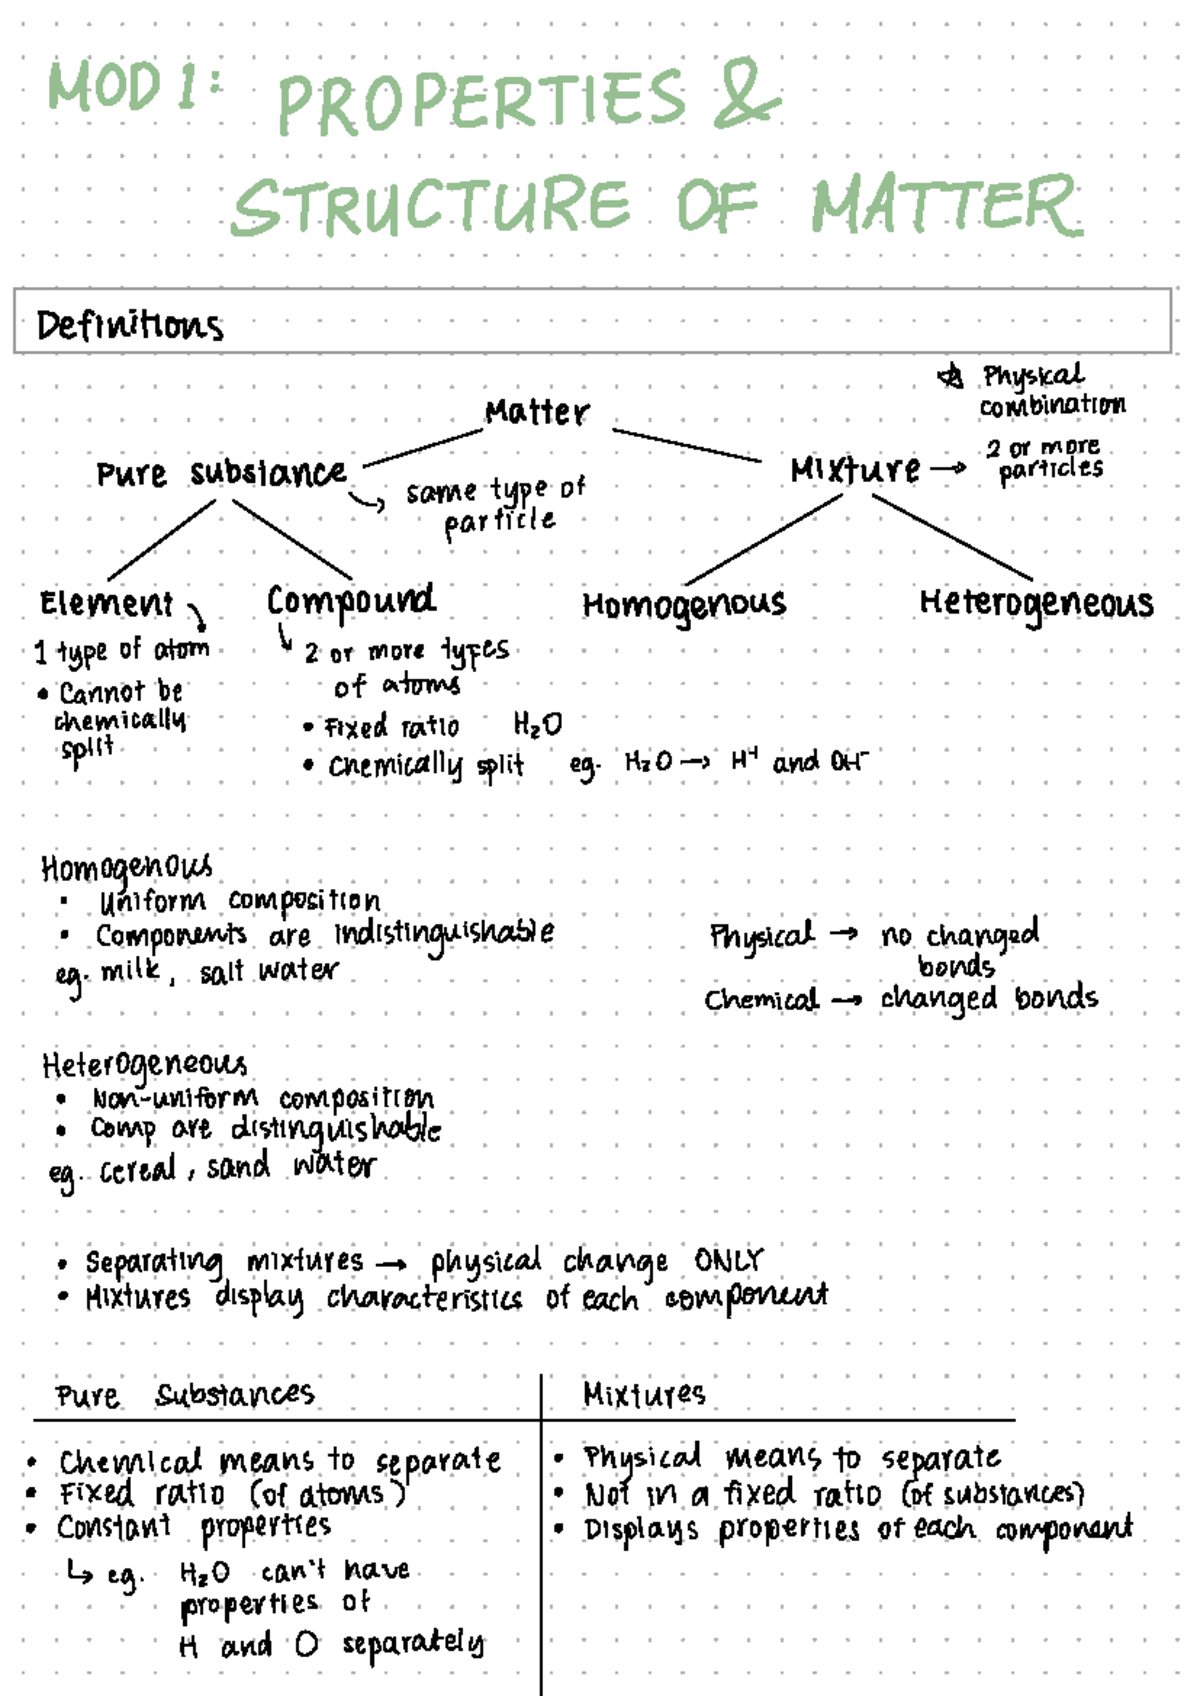 MOD 1: PROPERTIES &
STRUCTURE OF MATTER
Definitions
☆ Physical
combination
Matter
Pure substance
Mixture → 2 or more
particles
↪ same type of
particle
Element
Compound
Homogenous
Heterogeneous
1 type of atom
• Cannot be
chemically
split
↳ 2 or more types
of atoms
• Fixed ratio H₂O
• Chemically split eg. H₂O → H⁺ and OH⁻
Homogenous
• Uniform composition
• Components are indistinguishable
eg. milk, salt water
Physical → no changed
bonds
Chemical → changed bonds
Heterogeneous
• Non-uniform composition
• Comp are distinguishable
eg. cereal, sand water
• Separating mixtures → physical change ONLY
• Mixtures display characteristics of each component
Pure Substances
• Chemical means to separate
• Fixed ratio (of atoms)
• Constant properties
↳ eg. H₂O can't have
properties of
H and O separately
Mixtures
• Physical means to separate
• Not in a fixed ratio (of substances)
• Displays properties of each component